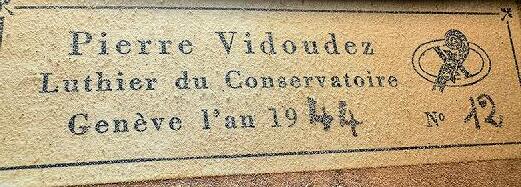 Pierre Vidoudez
Luthier du Conservatoire
Genève l'an 1944 No 12